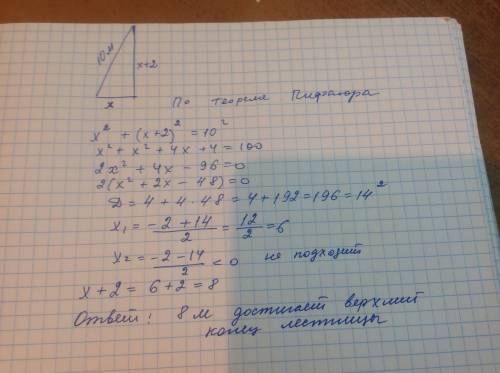 10 м
x+2
x
По теореме Пифагора
x² + (x+2)² = 10²
x² + x² + 4x + 4 = 100
2x² + 4x - 96 = 0
2(x² + 2x - 48) = 0
D = 4 + 4 · 48 = 4 + 192 = 196 = 14²
x₁ = (-2 + 14)/2 = 12/2 = 6
x₂ = (-2 - 14)/2 < 0 не подходит
x + 2 = 6 + 2 = 8
Ответ: 8 м достигает верхний
конец лестницы